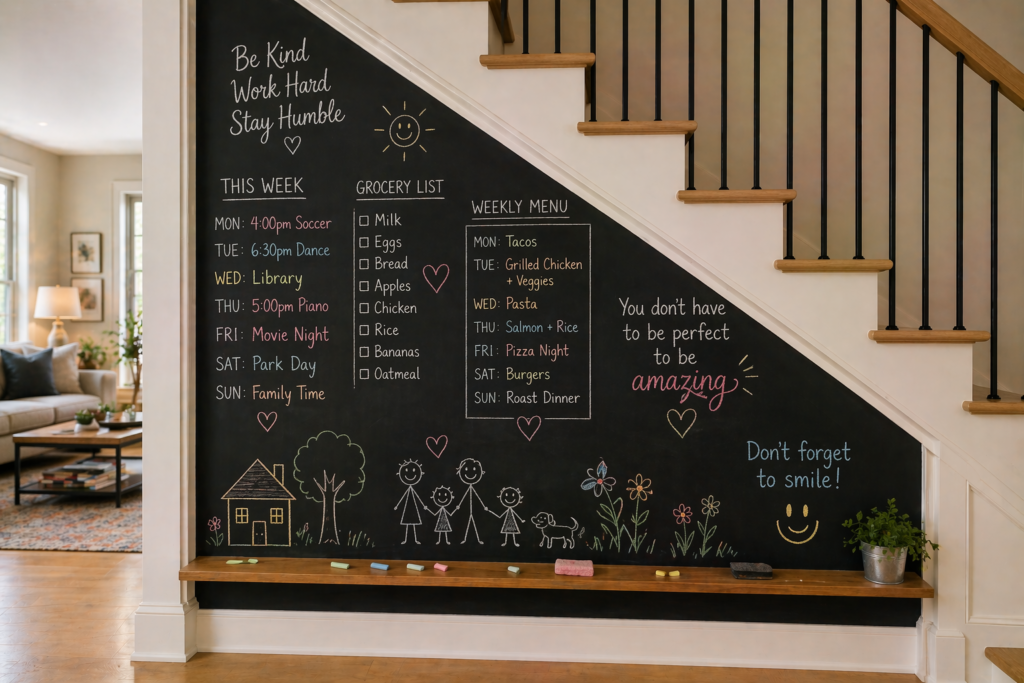 Be Kind
Work Hard
Stay Humble
THIS WEEK
MON: 4:00pm Soccer
TUE: 6:30pm Dance
WED: Library
THU: 5:00pm Piano
FRI: Movie Night
SAT: Park Day
SUN: Family Time
GROCERY LIST
Milk
Eggs
Bread
Apples
Chicken
Rice
Bananas
Oatmeal
WEEKLY MENU
MON: Tacos
TUE: Grilled Chicken
+ Veggies
WED: Pasta
THU: Salmon + Rice
FRI: Pizza Night
SAT: Burgers
SUN: Roast Dinner
You don't have
to be perfect
to be
amazing
Don't forget
to smile!